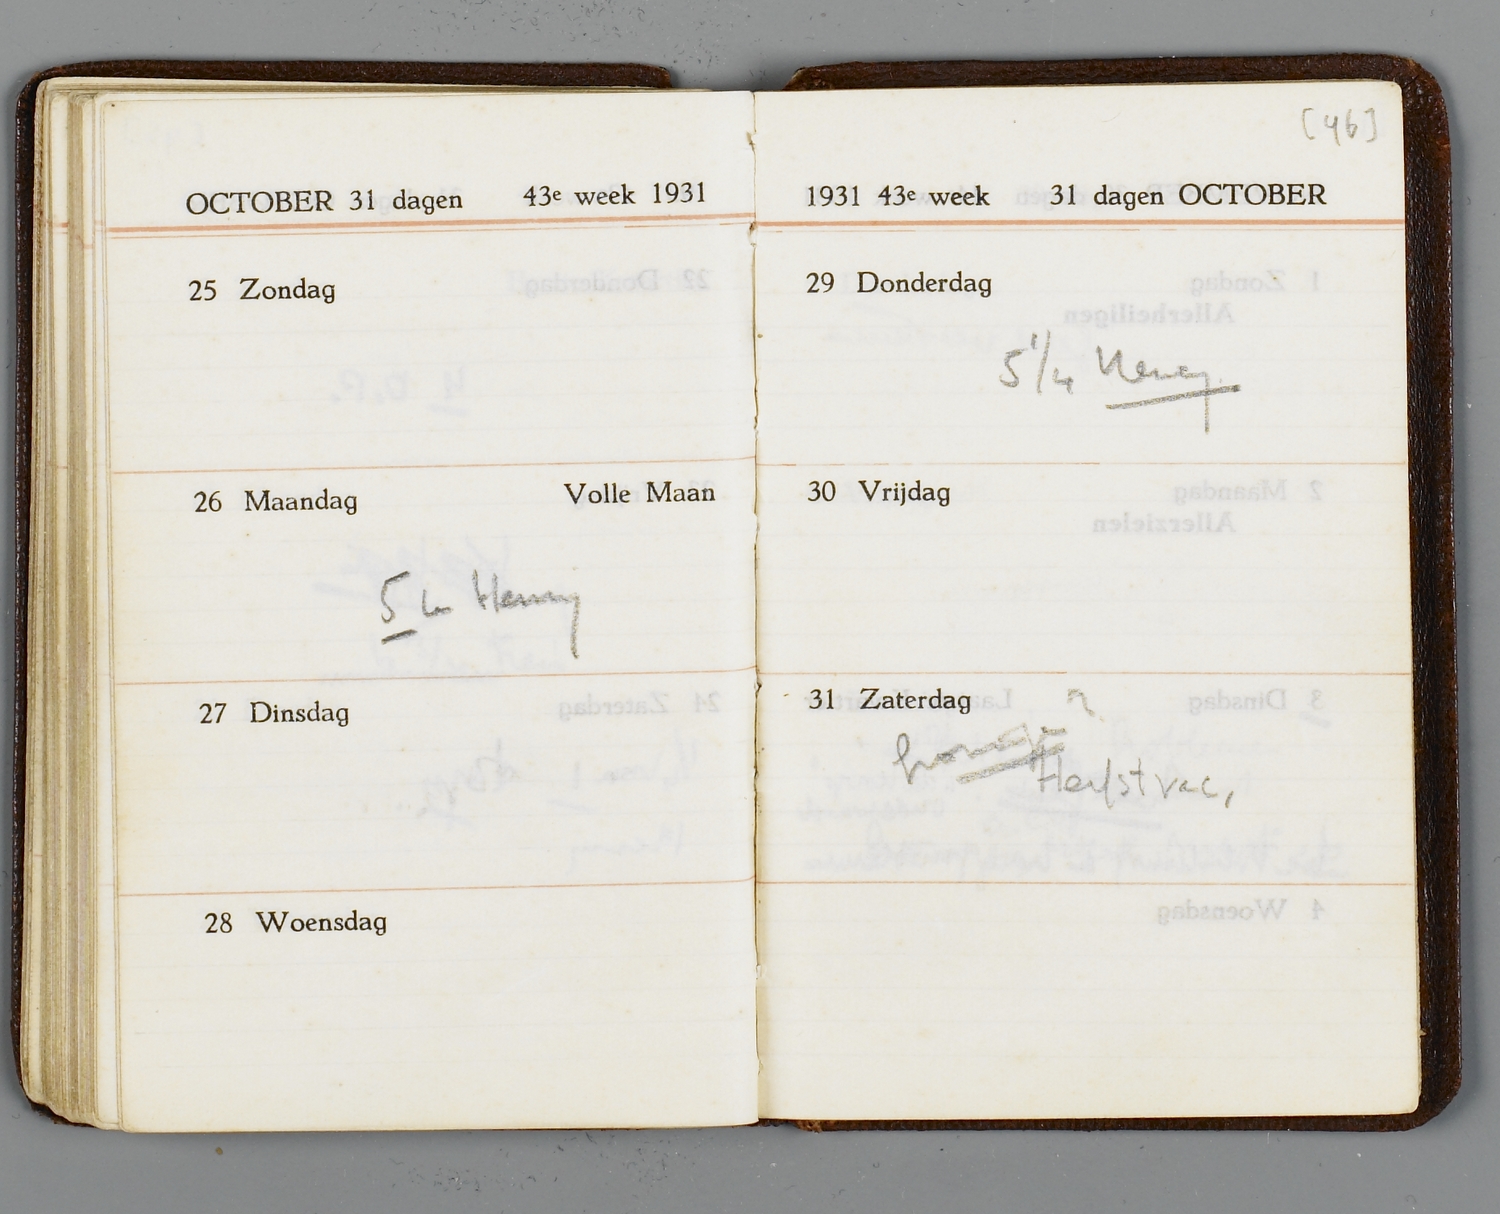 [46]
OCTOBER 31 dagen 43e week 1931
25 Zondag
26 Maandag Volle Maan
5 u Henny
27 Dinsdag
28 Woensdag
1931 43e week 31 dagen OCTOBER
29 Donderdag
5 1/4
30 Vrijdag
31 Zaterdag
Herfstvac,